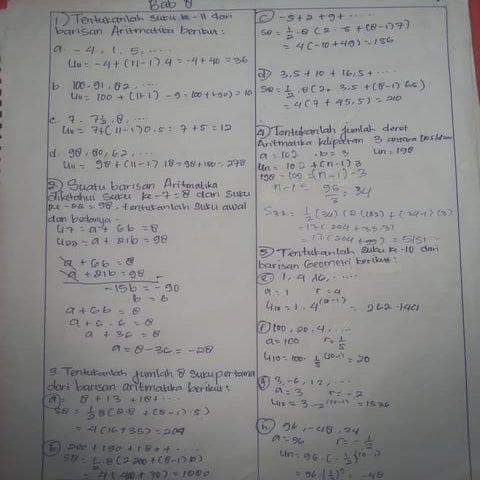 Bab 8
1) Tentukanlah suku ke-11 dari
barisan Aritmatika berikut:
a. -4, 1, 5, ....
U11 = -4+(11-1)4 = -4+40 = 36
b. 100, 91, 82, ....
U11 = 100+(11-1) -9 = 100+(-90) = 10
c. 7, 7½, 8, ....
U11 = 7+(11-1)0.5 = 7+5 = 12
d. 98, 80, 62, ....
U11 = 98+(11-1)18 = 98+180 = 278
2. Suatu barisan Aritmatika
diketahui suku ke-7 = 8 dan suku
ke-22 = 98. tentukanlah suku awal
dan bedanya.
U7 = a+6b = 8
U22 = a+21b = 98
a+6b = 8
a+21b = 98 -
-15b = -90
b = 6
a+6b = 8
a+6.6 = 8
a+36 = 8
a = 8-36 = -28
3. Tentukanlah jumlah 8 suku pertama
dari barisan aritmatika berikut:
a. 8+13+18+....
S8 = ½.8(2.8+(8-1).5)
= 4(16+35) = 204
b. 200+190+180+....
S8 = ½.8(2.200+(8-1)10)
c. -5+2+9+....
S8 = ½.8(2.-5+(8-1)7)
= 4(-10+49) = 156
d. 3,5+10+16,5+....
S8 = ½.8(2.3,5+(8-1)6,5)
= 4(7+45,5) = 210
4. Tentukanlah jumlah deret
Aritmatika kelipatan 3 antara
a = 102 .b = 3 Un = 198
Un = 102+(n-1)3
n-1 =
5. Tentukanlah suku ke-10 dari
barisan Geometri berikut:
e. 1, 4, 16, ....
a = 1 r = 4
U10 = 1.4^(10-1) = 262.144
f. 100, 20, 4, ....
a = 100 r = 1/5
U10 = 100.1/5^(10-1) = 20
g. 3, -6, 12, ...
a = 3 r = -2
U10 = 3.-2^(10-1) = 1536
h. 96, -48, 24
a = 96 r = -½
Un = 96.(-½)^(10-1)